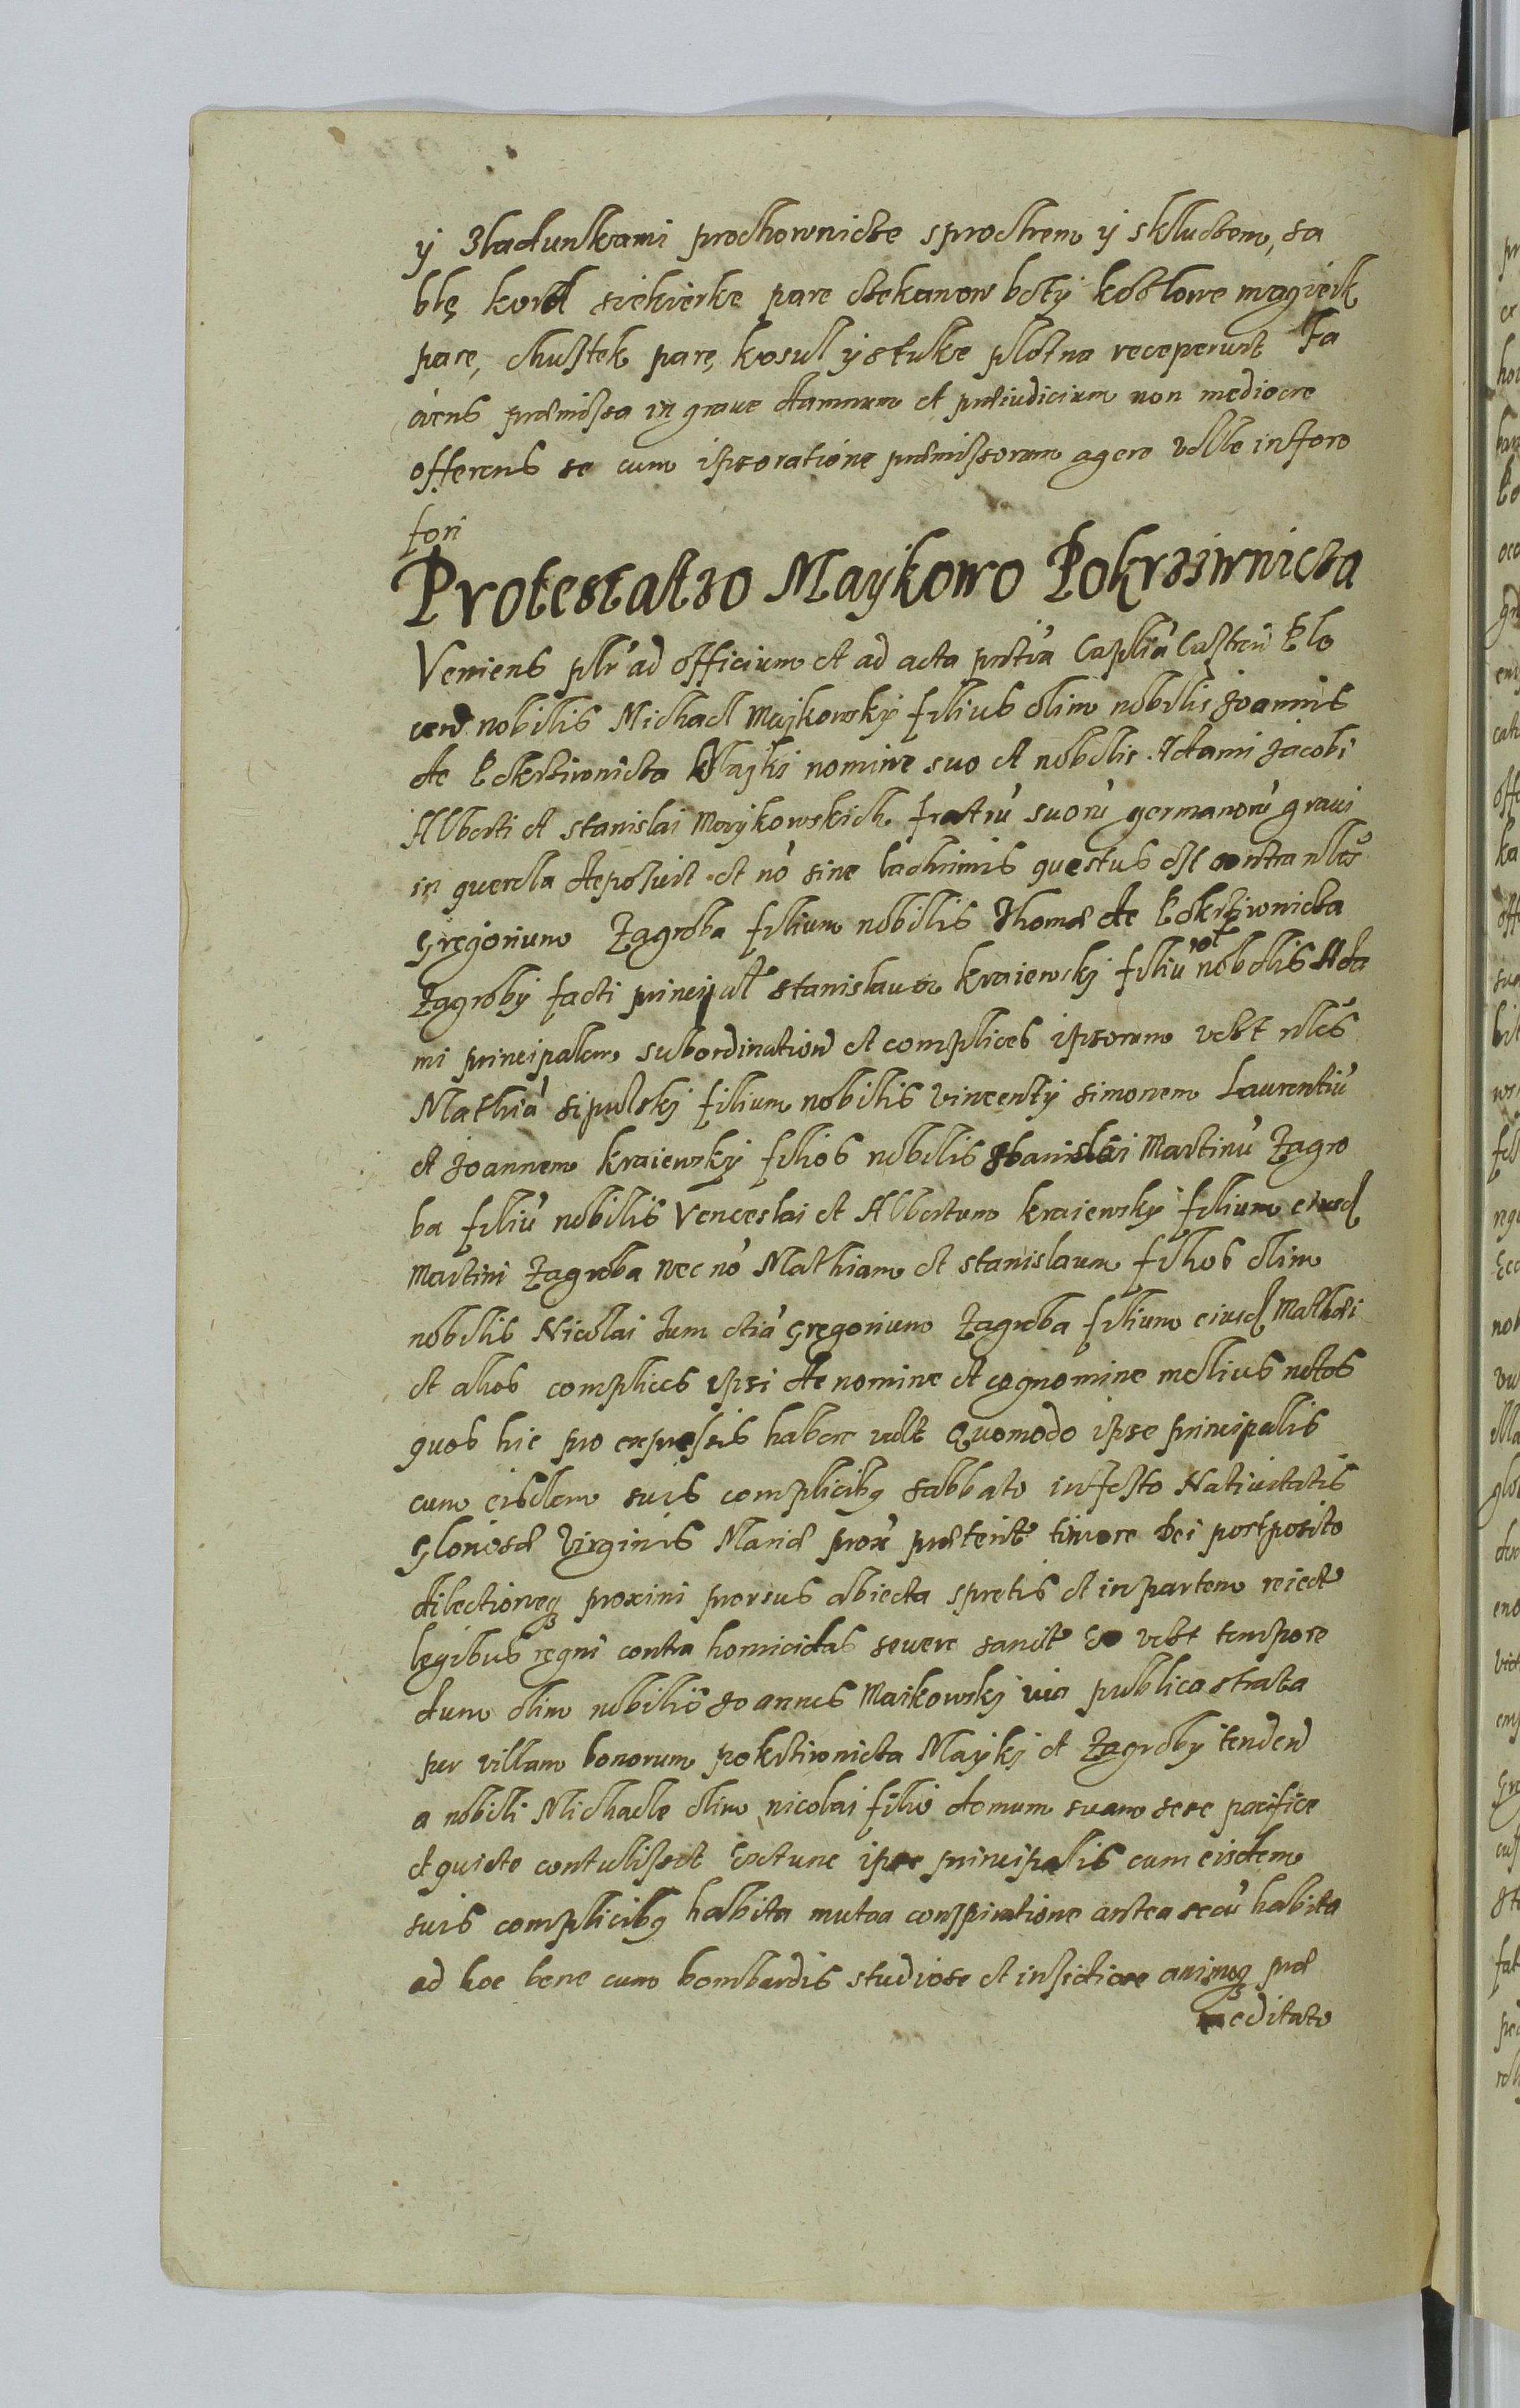 y zładunkami prochownicze sprochem y skluczem, sa
blę kord siekierke pare czekanow boty kozlowe magierk
parę, chustek parę, kosul y stuke płotna receperunt Fa
ciens præmissa in graue damnum et præiudicium non mediocre
offerens se cum ipso ratione præmissorum agere velle in foro
fori
Protestatio Maykowo Pokrziwnicza
Veniens plr̃ ad officium et ad acta pntia Caplia Castren Plo
cen nobilis Michael Maykowsky filius olim nobilis Joannis
de Pokrziwnicza Mayki nomine suo et nobilis Adami Jacobi
Alberti et Stanislai Maykowskich fratrũ suorũ germanorũ graui
in querela deposuit et nõ sine lachrimis questus est contra nles
Gregorium Zagroba filium nobilis Thomæ de Pokrziwnicza
Zagroby facti principal Stanislaum kraiewsky filiũ nobilis Ada
mi principalem subordination et complices ipsorum vt nles
Mathiã Sipulsky filium nobilis Vincenty Simonem Laurentiũ
et Joannem kraiewsky filios nobilis Stanislai Martinũ Zagro
ba filiũ nobilis Venceslai et Albertum kraiewsky filium eiusd
Martini Zagroba nec nõ Mathiam et Stanislaum filios olim
nobilis Nicolai Tum etiã Gregorium Zagroba filium eiusd Mathæi
et alios complices ipsi de nomine et cognomine melius notos
quos hic pro expressis habere vult Quomodo ipse principalis
cum eisdem suis complicibq sabbato in festo Natiuitatis
Gloriosæ Virginis Mariæ prox præterit timore Dei postposito
dilectioneq proximi prorsus abiecta spretis et in partem reiect
legibus regni contra homicidas seuere sancit Eo tempore
dum olim nobilis Joannes Maikowski via publica strata
per villam bonorum pokrziwnicza Mayki et Zagroby tenden
a nobili Michaele olim nicolai filio domum suam sese pacifice
et quiete contulisset Extunc ipse principalis cum eisdem
suis complicibq habita mutua conspiratione antea secũ habita
ad hoc bene cum bombardis studiose et animoq præ
meditato